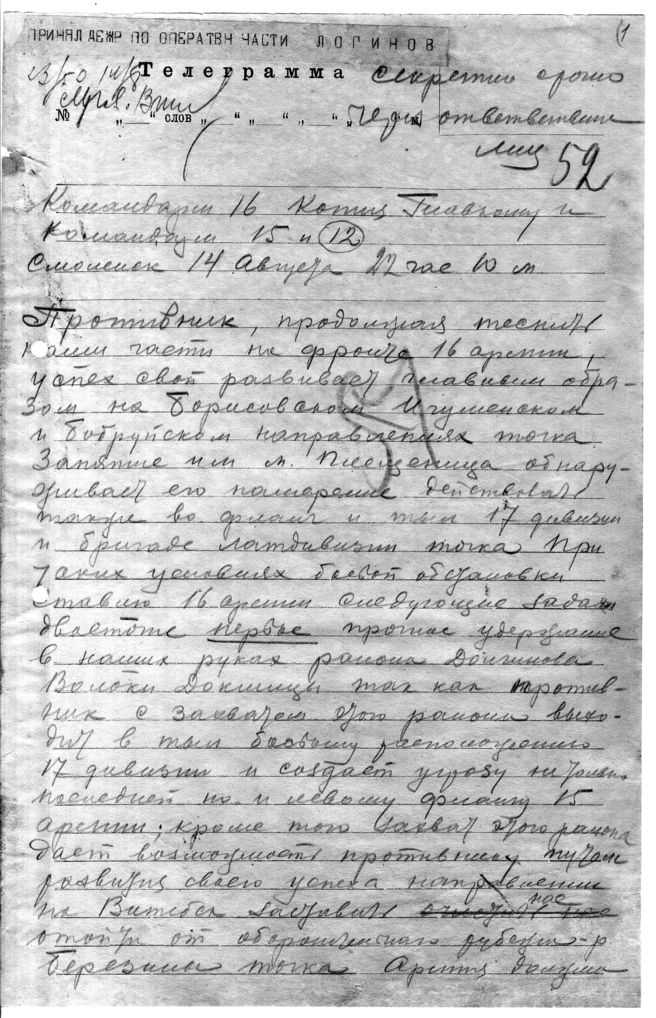 1
ПРИНЯЛ ДЕЖР ПО ОПЕРАТВН ЧАСТИ ЛОГИНОВ
13/50 14/8 Телеграмма секретно срочно
№ „ “ слов „ “ „ “ „ “ „ ч. м. ответственн
лиц 52
Командарм 16 Копия Главкому и
Командарм 15 и 12
Смоленск 14 Августа 22 час 10 м.
Противник, продолжая теснить
наши части на фронте 16 армии,
успех свой развивает главным обра-
зом на Борисовском Игуменском
и Бобруйском направлениях точка
Занятие им м. Плещеница обнару-
живает его намерение действовать
также во фланг и тыл 17 дивизии
и бригаде латдивизии точка При
таких условиях боевой обстановки
ставлю 16 армии следующие задачи
двоеточие первое прочное удержание
в наших руках района Долгинова
Волоки Докшицы так как против-
ник с захватом этого района выхо-
дит в тыл боевому расположению
17 дивизии и создает угрозу не только
последней но и левому флангу 15
армии; кроме того захват этого района
дает возможность противнику путем
развития своего успеха направлении
на Витебск заставить нас
отойти от оборонительного рубежа р
Березины точка Армия должна